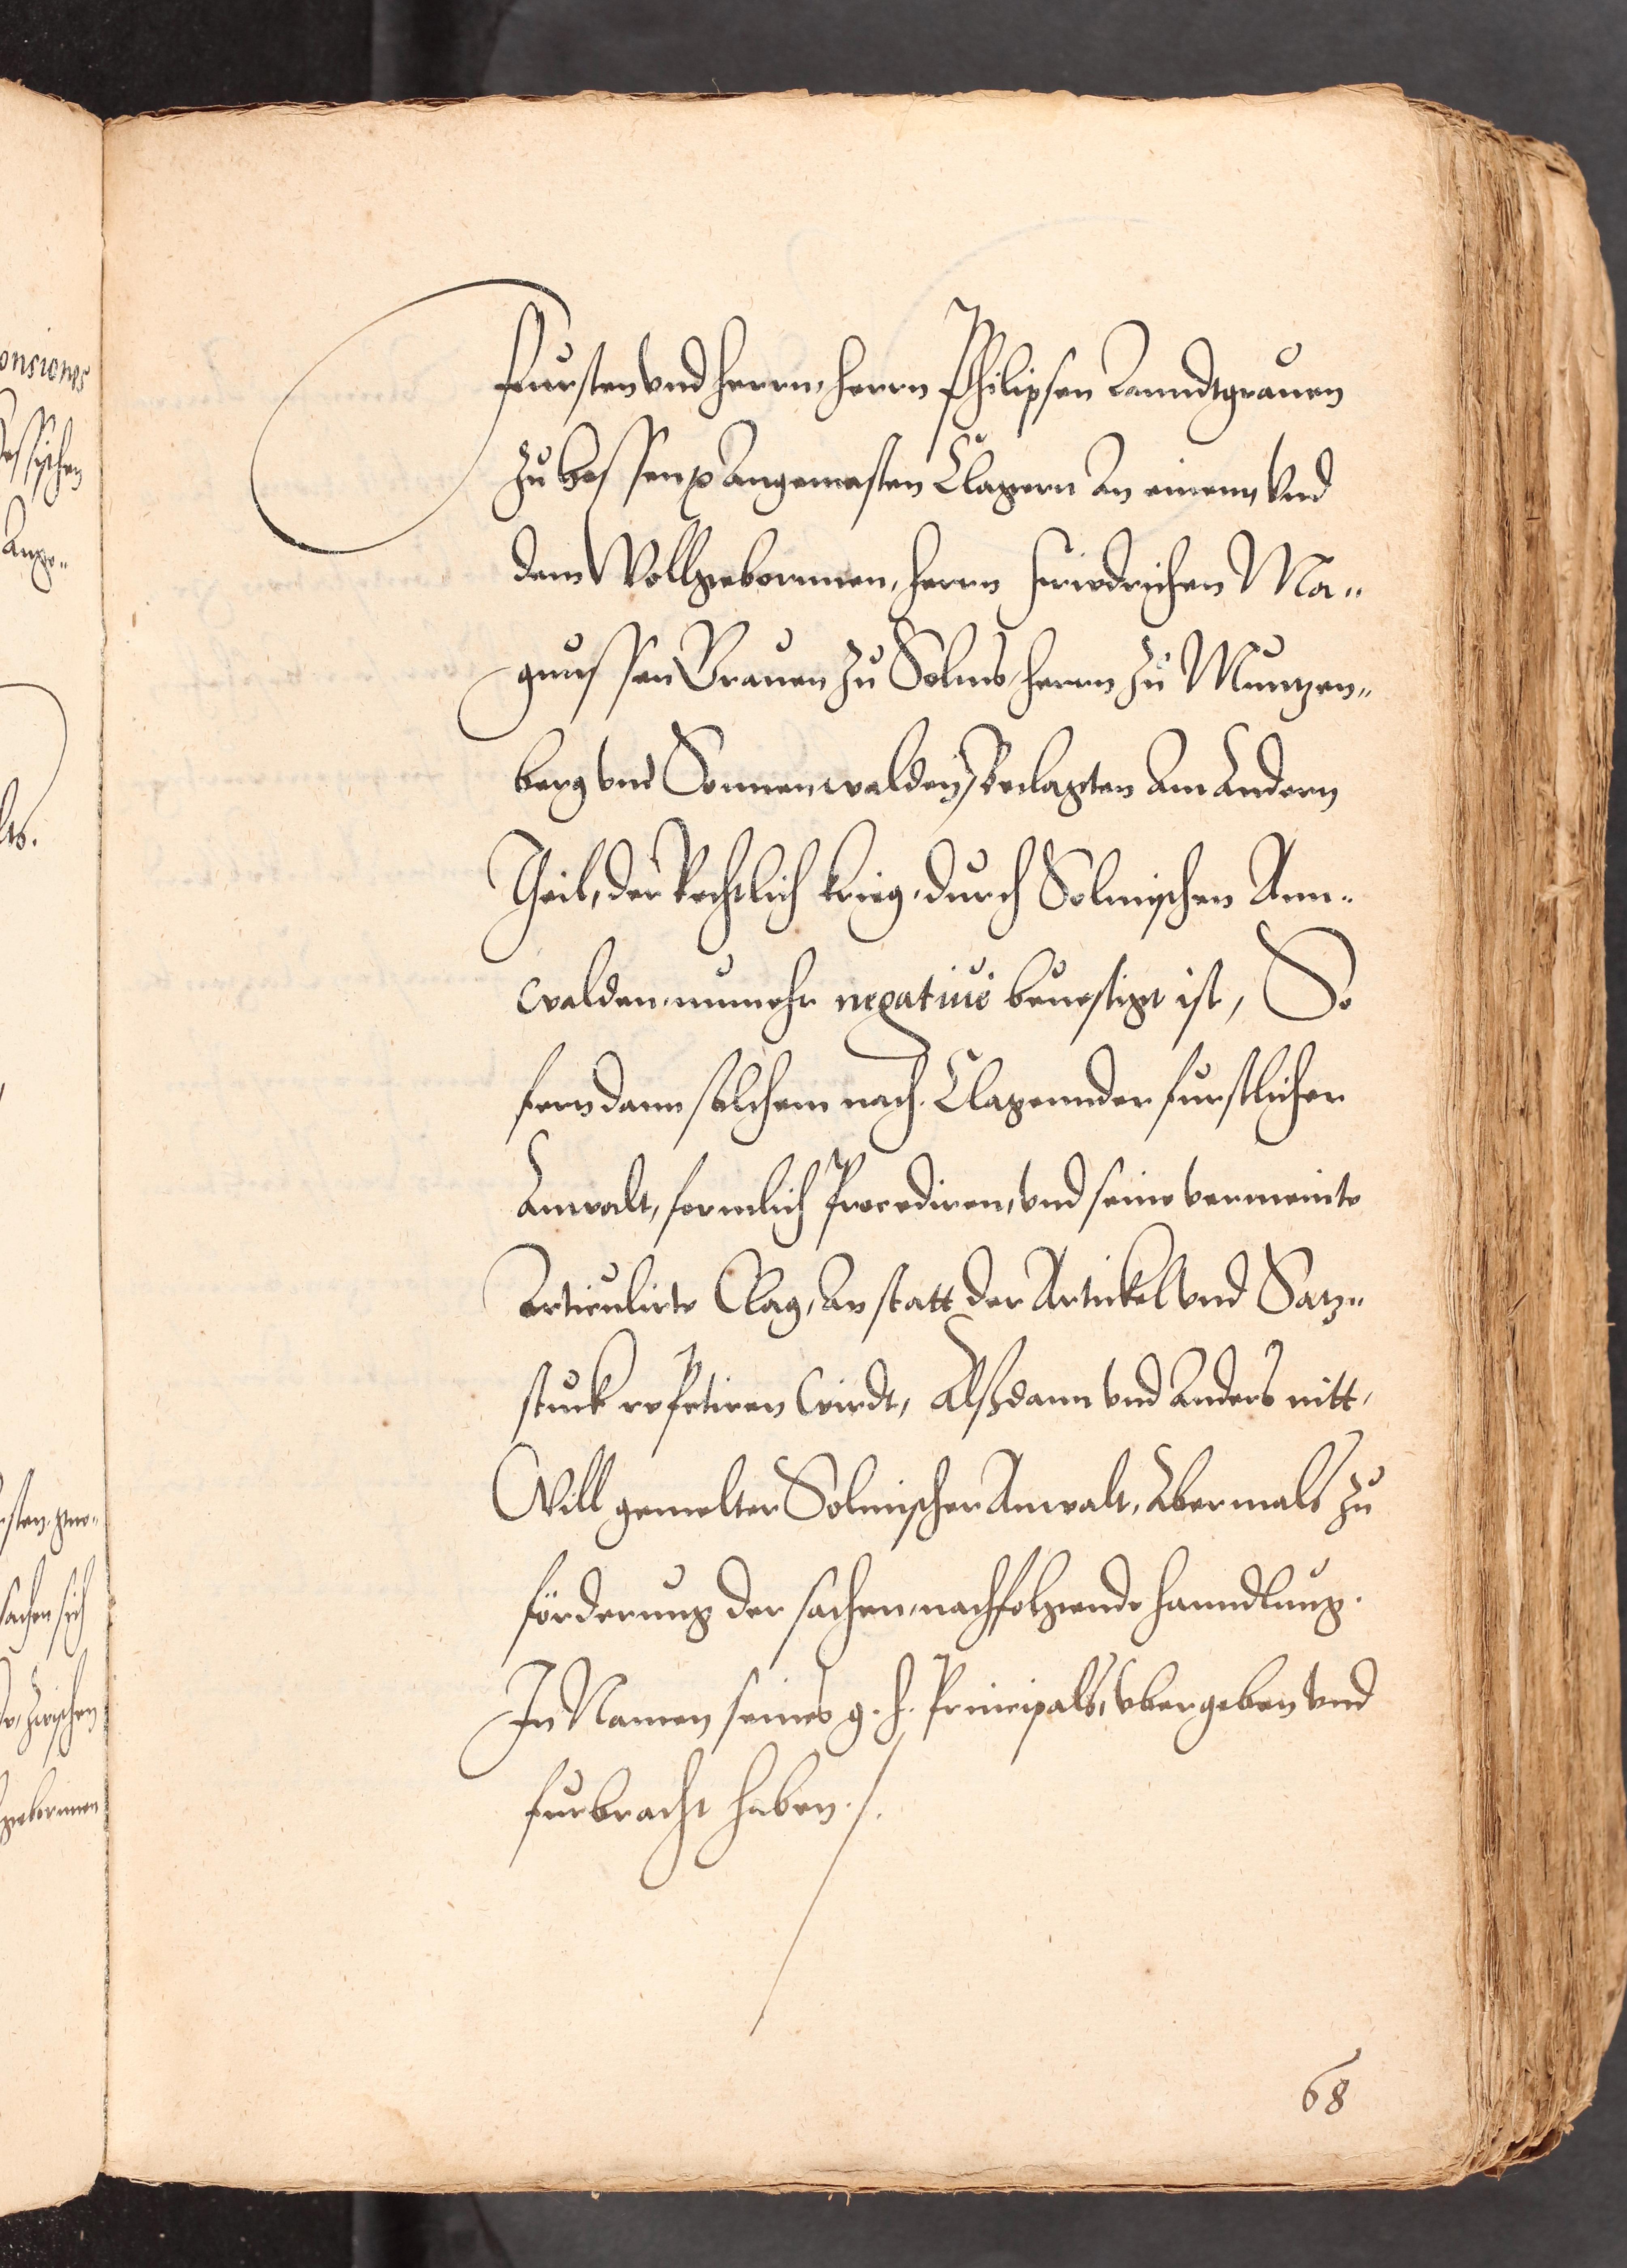 Fursten vnd herrn, herrn Philipsen Lanndtgrauen
zu Hessen etc Angemasten Clagern an einem, vnd
dem Wollgebornnen, herrn Friedrichen Ma„
gnussen Grauen zu Solms herrn zu Muntzen„
berg vnd Sonnenwalden, Beclagten am Andern
Theil, der Rechtlich krieg, durch Solmischen Ann„
walden nunmehr negatiue beuestigt ist, So
fern dann solchem nach Clagennder furstlicher
Anwalt, formlich Procediren, vnd seine vermeinte
Articulirte Clag, an statt der Artickel vnd Satz„
stuck repetiren wirdt, Alßdann vnd Anders nitt,
Will gemelter Solmischer Anwalt, Abermals zu
förderung der sachen, nachfolgende Hanndlung.
In Namen seines g. h. Principals, vbergeben vnd
furbracht haben ./.
68
onsiones
essischen
Ange„
sachen sich
zwischen
gebornnen